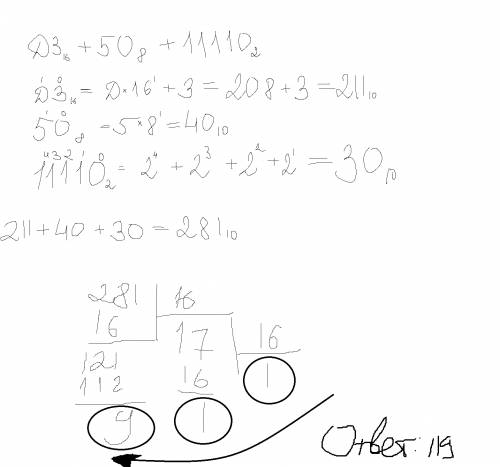 Д3₁₆ + 50₈ + 11110₂
Д¹3⁰₁₆ = Д*16¹ + 3 = 208 + 3 = 211₁₀
5¹0⁰₈ = 5*8¹ = 40₁₀
1⁴1³1²1¹0⁰₂ = 2⁴ + 2³ + 2² + 2¹ = 30₁₀
211 + 40 + 30 = 281₁₀
281 16
16 17 16
121 16 1
112 1
9
Ответ: 119